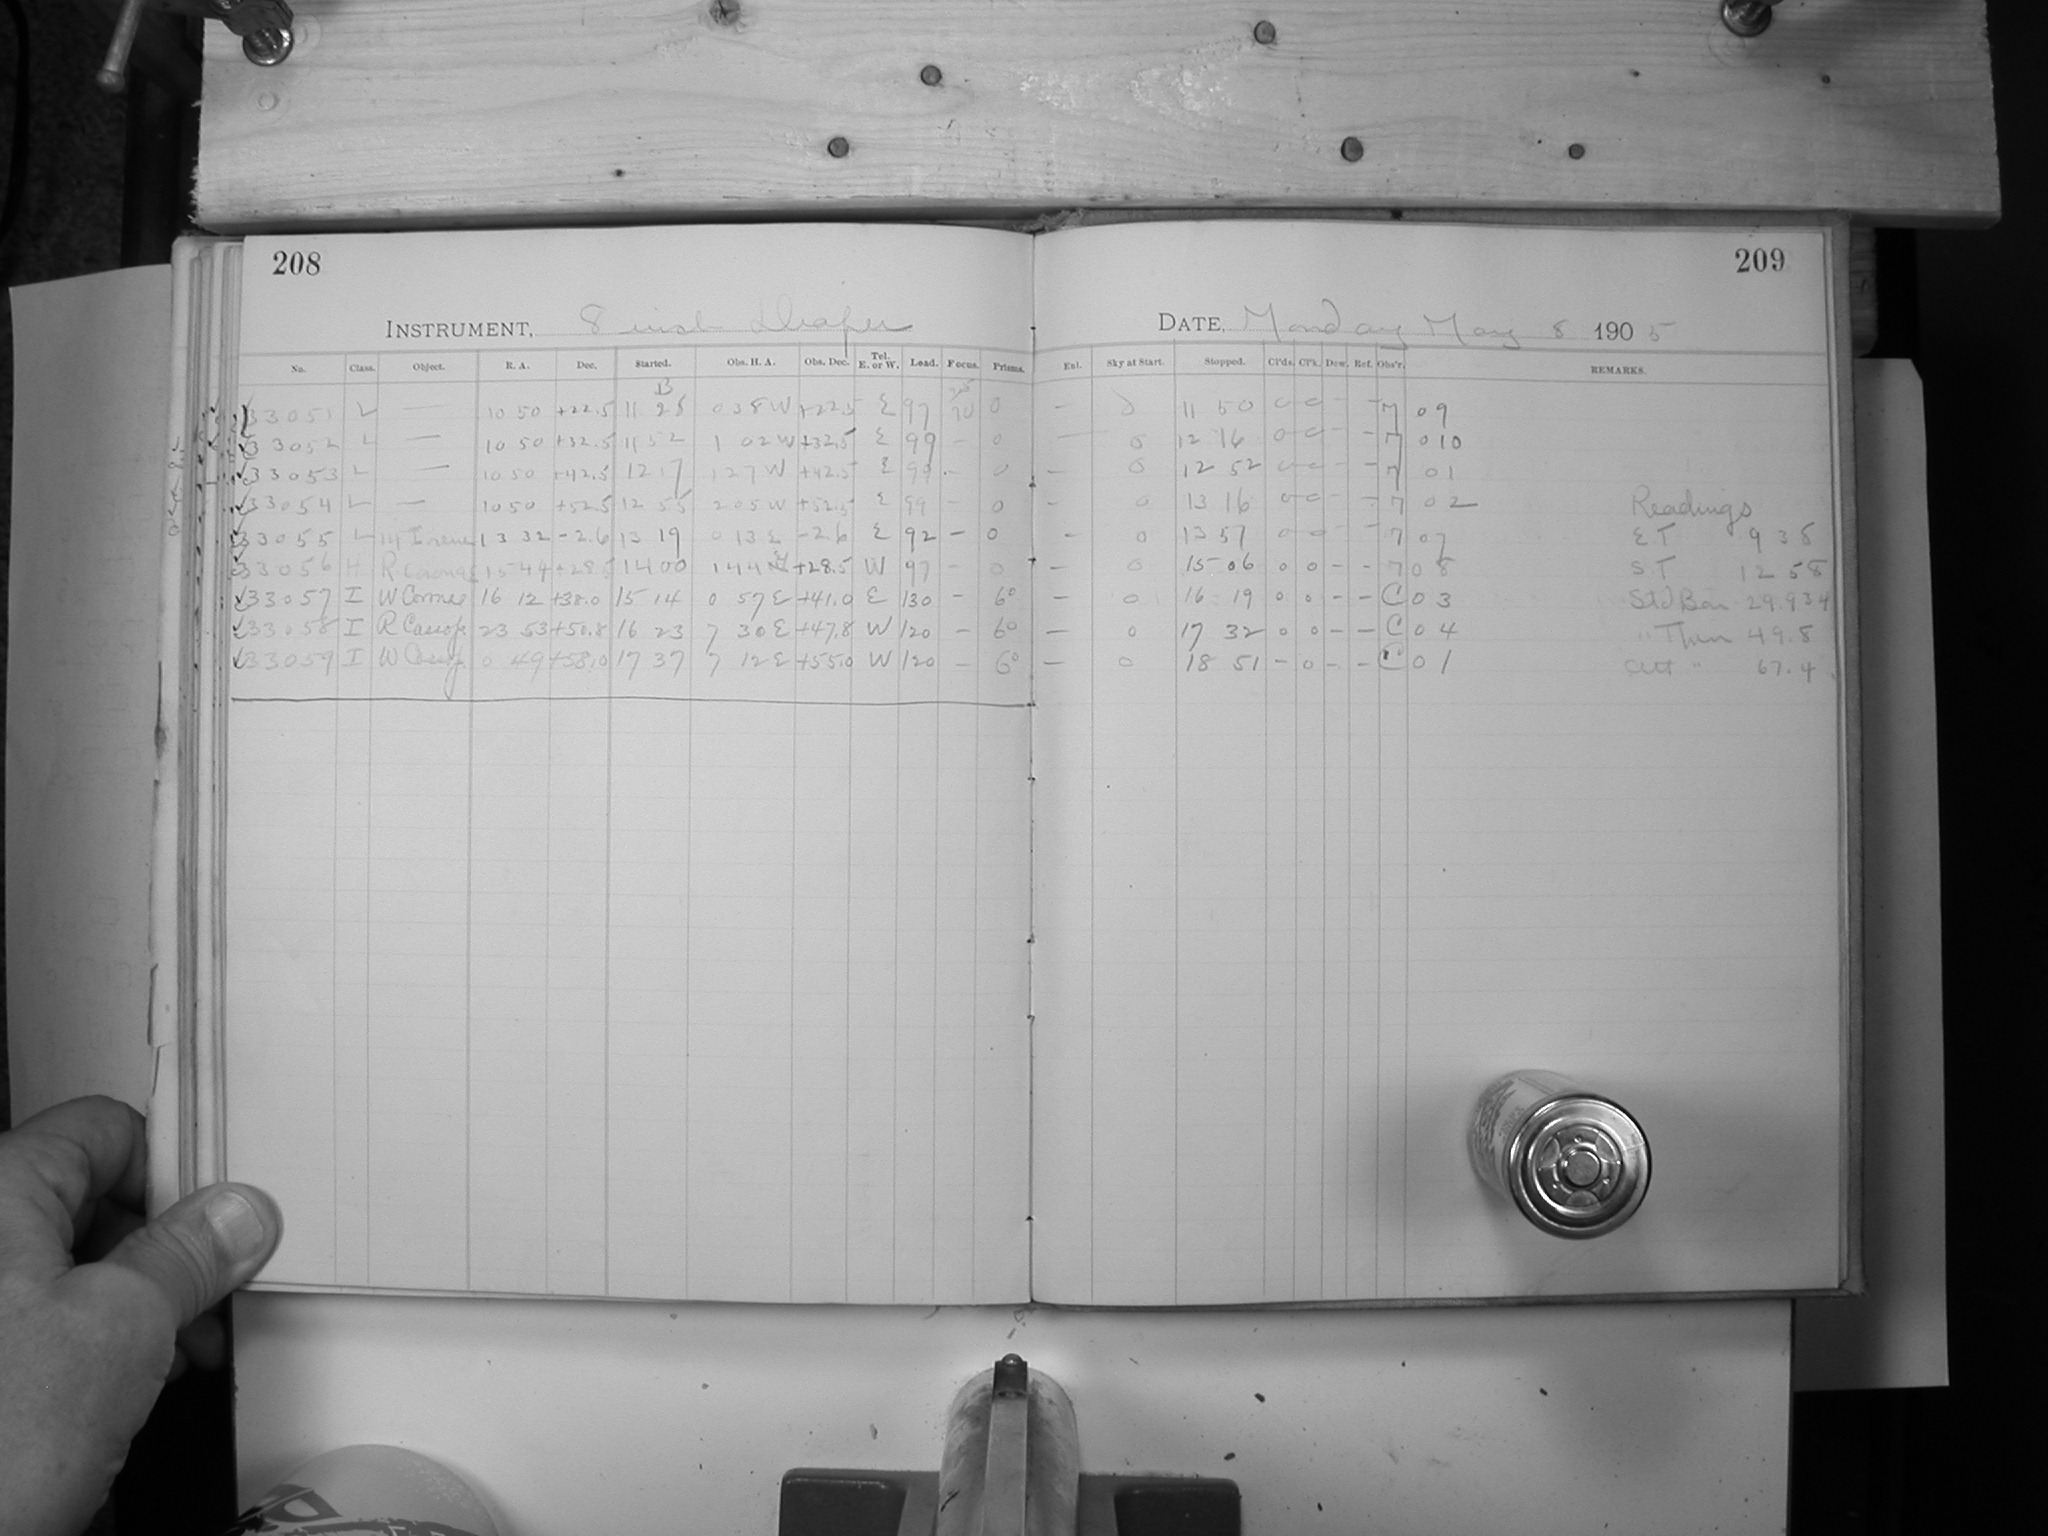 208
209
INSTRUMENT, 8 inch Draper
DATE, Monday May 8 1905
No. Class. Object. R. A. Dec. Started. Obs. H. A. Obs. Dec. Tel. E. or W. Load. Focus. Prisms. Enl. Sky at Start. Stopped. Cl'ds. Cl'k. Dew. Ref. Obs'r. REMARKS.
B
33051 L — 10 50 +22.5 11 28 0 38 W +22.5 E 97 0 — 0 11 50 0 0 - - 7 09
33052 L — 10 50 +32.5 11 52 1 02 W +32.5 E 99 - 0 — 0 12 16 0 0 - - 7 010
33053 L — 10 50 +42.5 12 17 1 27 W +42.5 E 99 - 0 — 0 12 52 0 0 - - 7 01
33054 L — 10 50 +52.5 12 55 2 05 W +52.5 E 99 - 0 - 0 13 16 0 0 - - 7 02
Readings
33055 L 14 Irene 13 32 -2.6 13 19 0 13 E -2.6 E 92 - 0 - 0 13 57 0 0 - - 7 07
E T 9 38
33056 H R Coronae 15 44 +28.5 14 00 1 44 +28.5 W 97 - 0 - 0 15 06 0 0 - - 7 08
S T 12 58
33057 I W Coronae 16 12 +38.0 15 14 0 57 E +41.0 E 130 - 6° - 0 16 19 0 0 - - C 03
Std Bar 29.934
33058 I R Cassiop 23 53 +50.8 16 23 7 30 E +47.8 W 120 - 6° — 0 17 32 0 0 - - C 04
" Ther 49.8
33059 I W Cassiop 0 49 +58.0 17 37 7 12 E +55.0 W 120 - 6° — 0 18 51 - 0 - - C 01
Att " 67.4